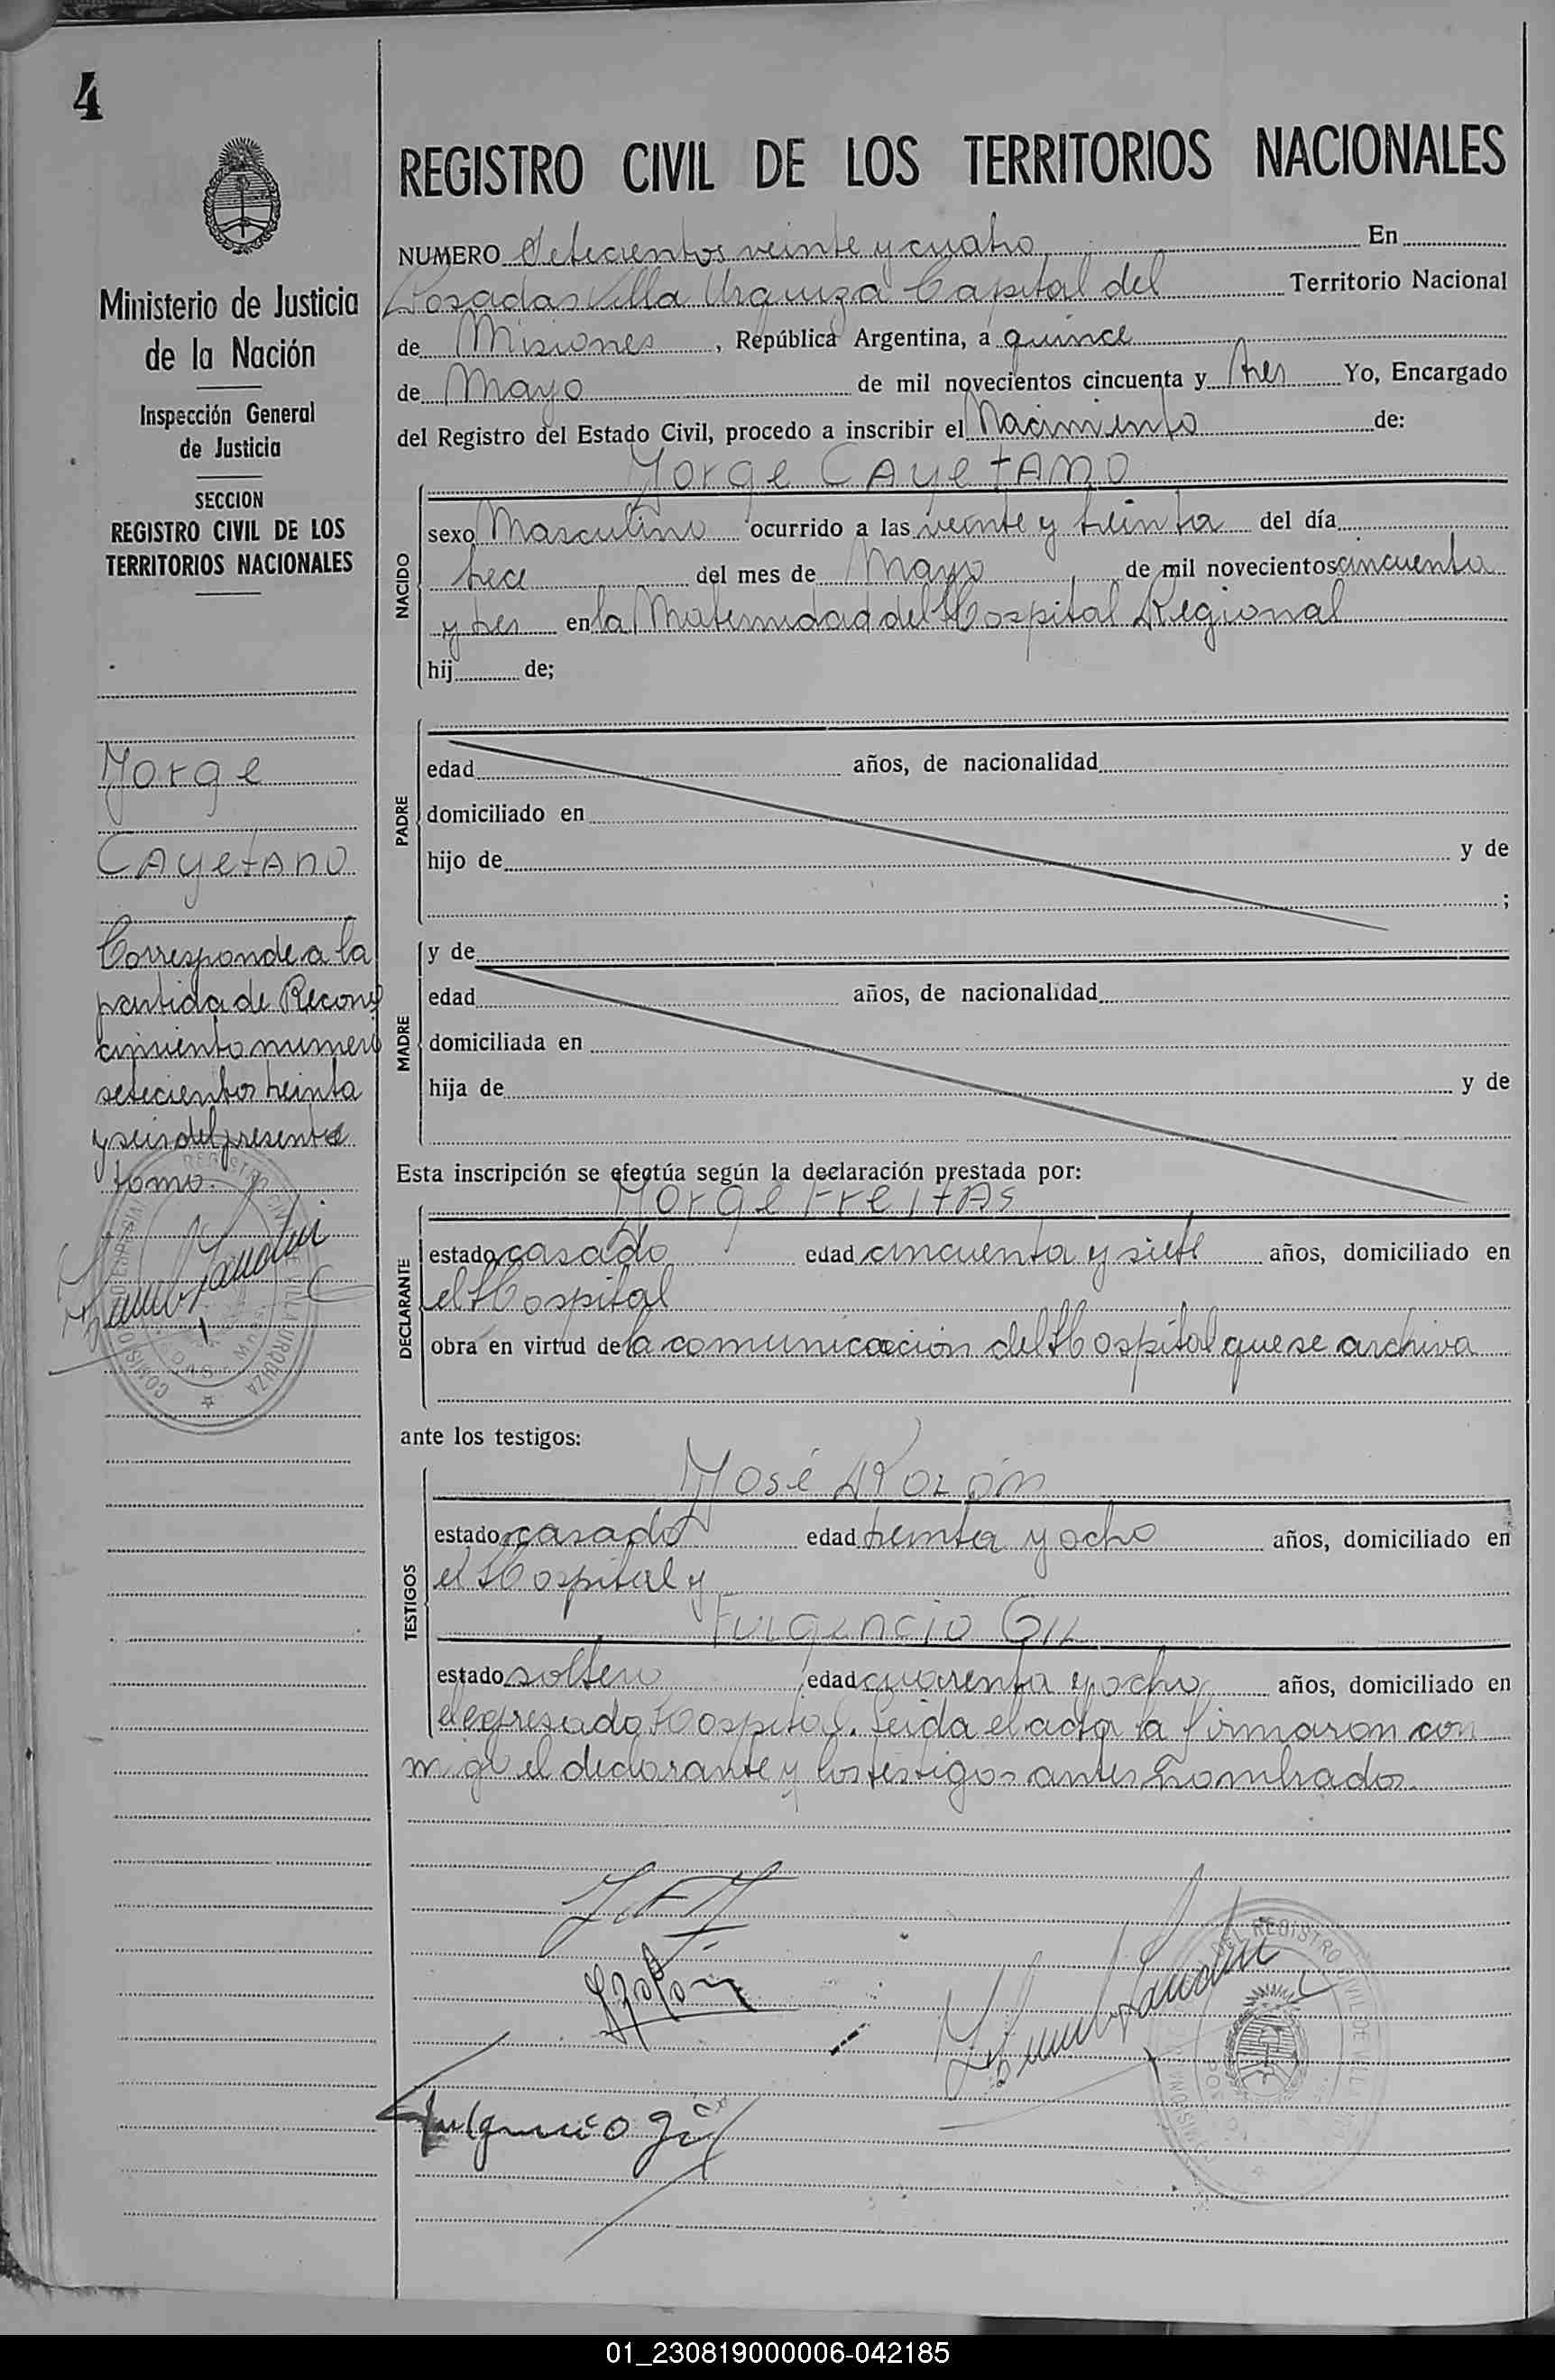 4
Ministerio de Justicia
de la Nación
Inspección General
de Justicia
SECCION
REGISTRO CIVIL DE LOS
TERRITORIOS NACIONALES
Jorge
Cayetano
Corresponde a la
partida de Recono
cimiento numero
setecientos treinta
y seis del presente
tomo.
REGISTRO CIVIL DE LOS TERRITORIOS NACIONALES
NUMERO Setecientos veinte y cuatro En
Posadas Villa Urquiza Capital del Territorio Nacional
de Misiones, República Argentina, a quince
de Mayo de mil novecientos cincuenta y tres Yo, Encargado
del Registro del Estado Civil, procedo a inscribir el Nacimiento de:
Jorge Cayetano
NACIDO
sexo Masculino ocurrido a las veinte y treinta del día
trece del mes de Mayo de mil novecientos cincuenta
y tres en la Maternidad del Hospital Regional
hij de;
PADRE
edad años, de nacionalidad
domiciliado en
hijo de y de
;
MADRE
y de
edad años, de nacionalidad
domiciliada en
hija de y de
Esta inscripción se efectúa según la declaración prestada por:
Jorge Freitas
DECLARANTE
estado casado edad cincuenta y siete años, domiciliado en
el Hospital
obra en virtud de la comunicacion del Hospital que se archiva
ante los testigos:
José Rolón
TESTIGOS
estado casado edad treinta y ocho años, domiciliado en
el Hospital y
Fulgencio Gil
estado soltero edad cuarenta y ocho años, domiciliado en
el egresado Hospital. Leida el acta la firmaron con
migo el declarante y los testigos antes nombrados.
Fulgencio Gil
01_230819000006-042185